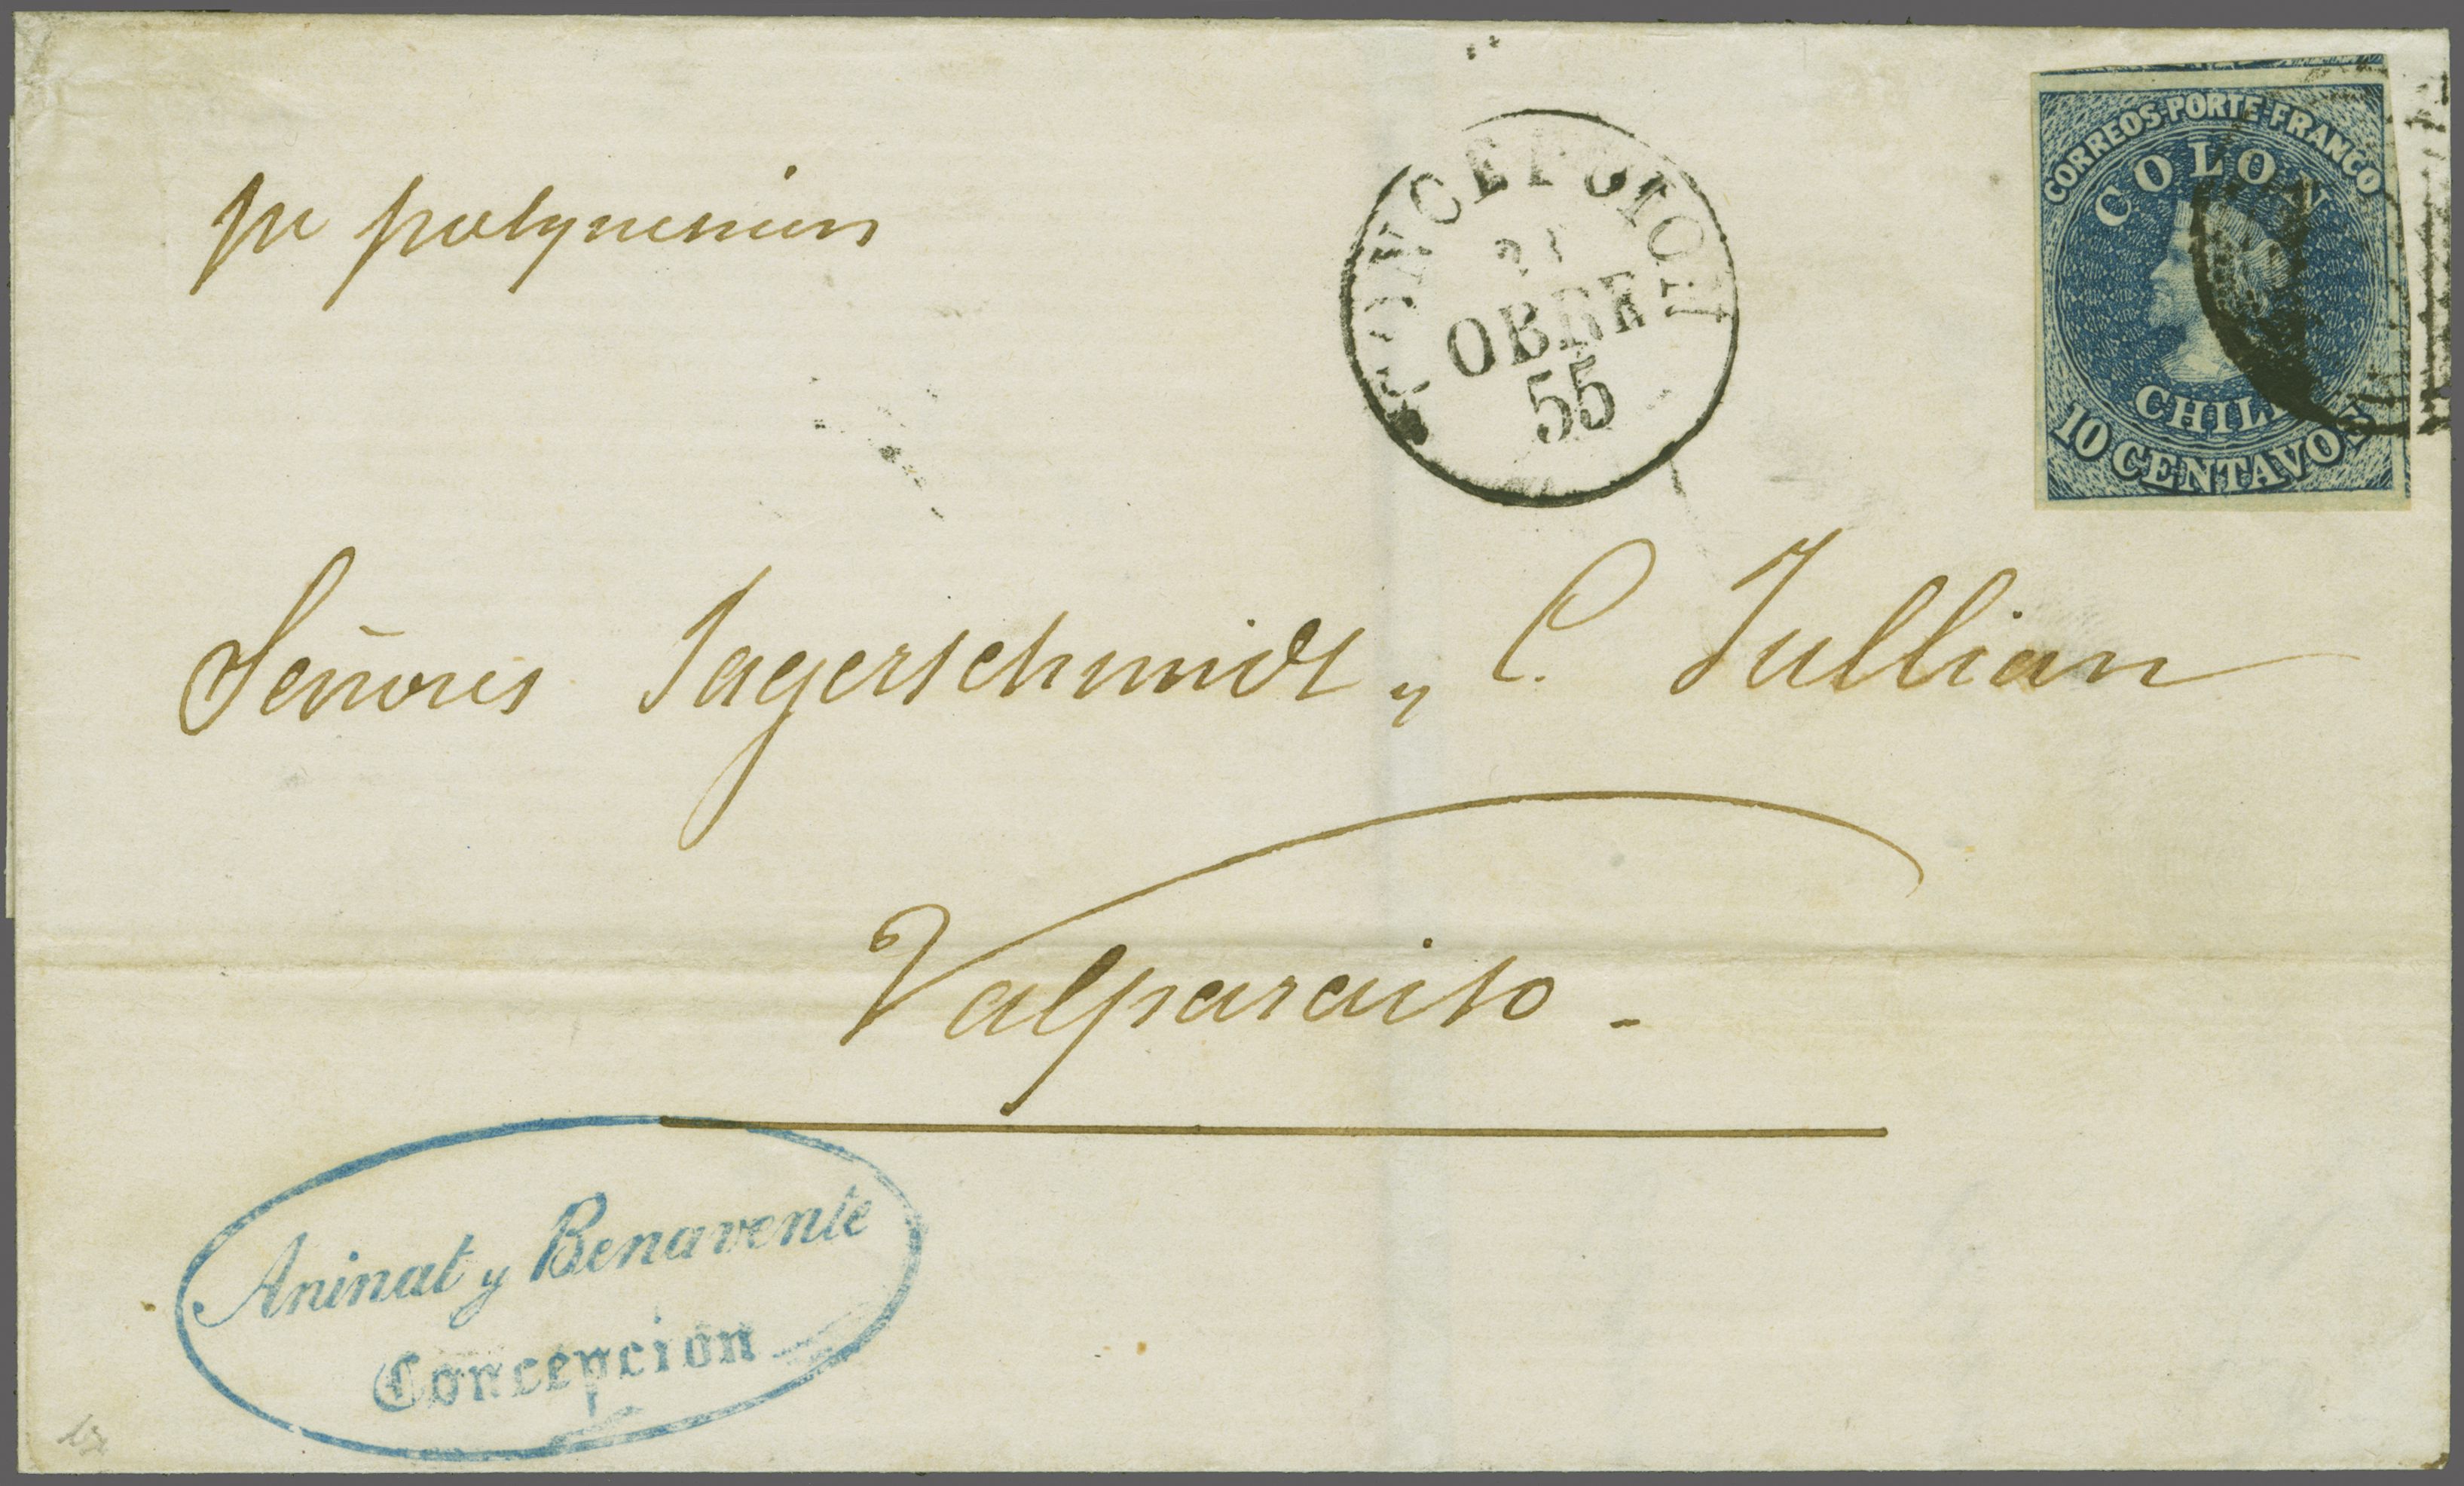 pr polynesien
CONCEPCION
OBRE
55
CORREOS·PORTE·FRANCO
COLON
CHILE
10 CENTAVOS
Señores Jagerschmidt y C. Jullian
Valparaiso -
Aninat y Benavente
Concepción